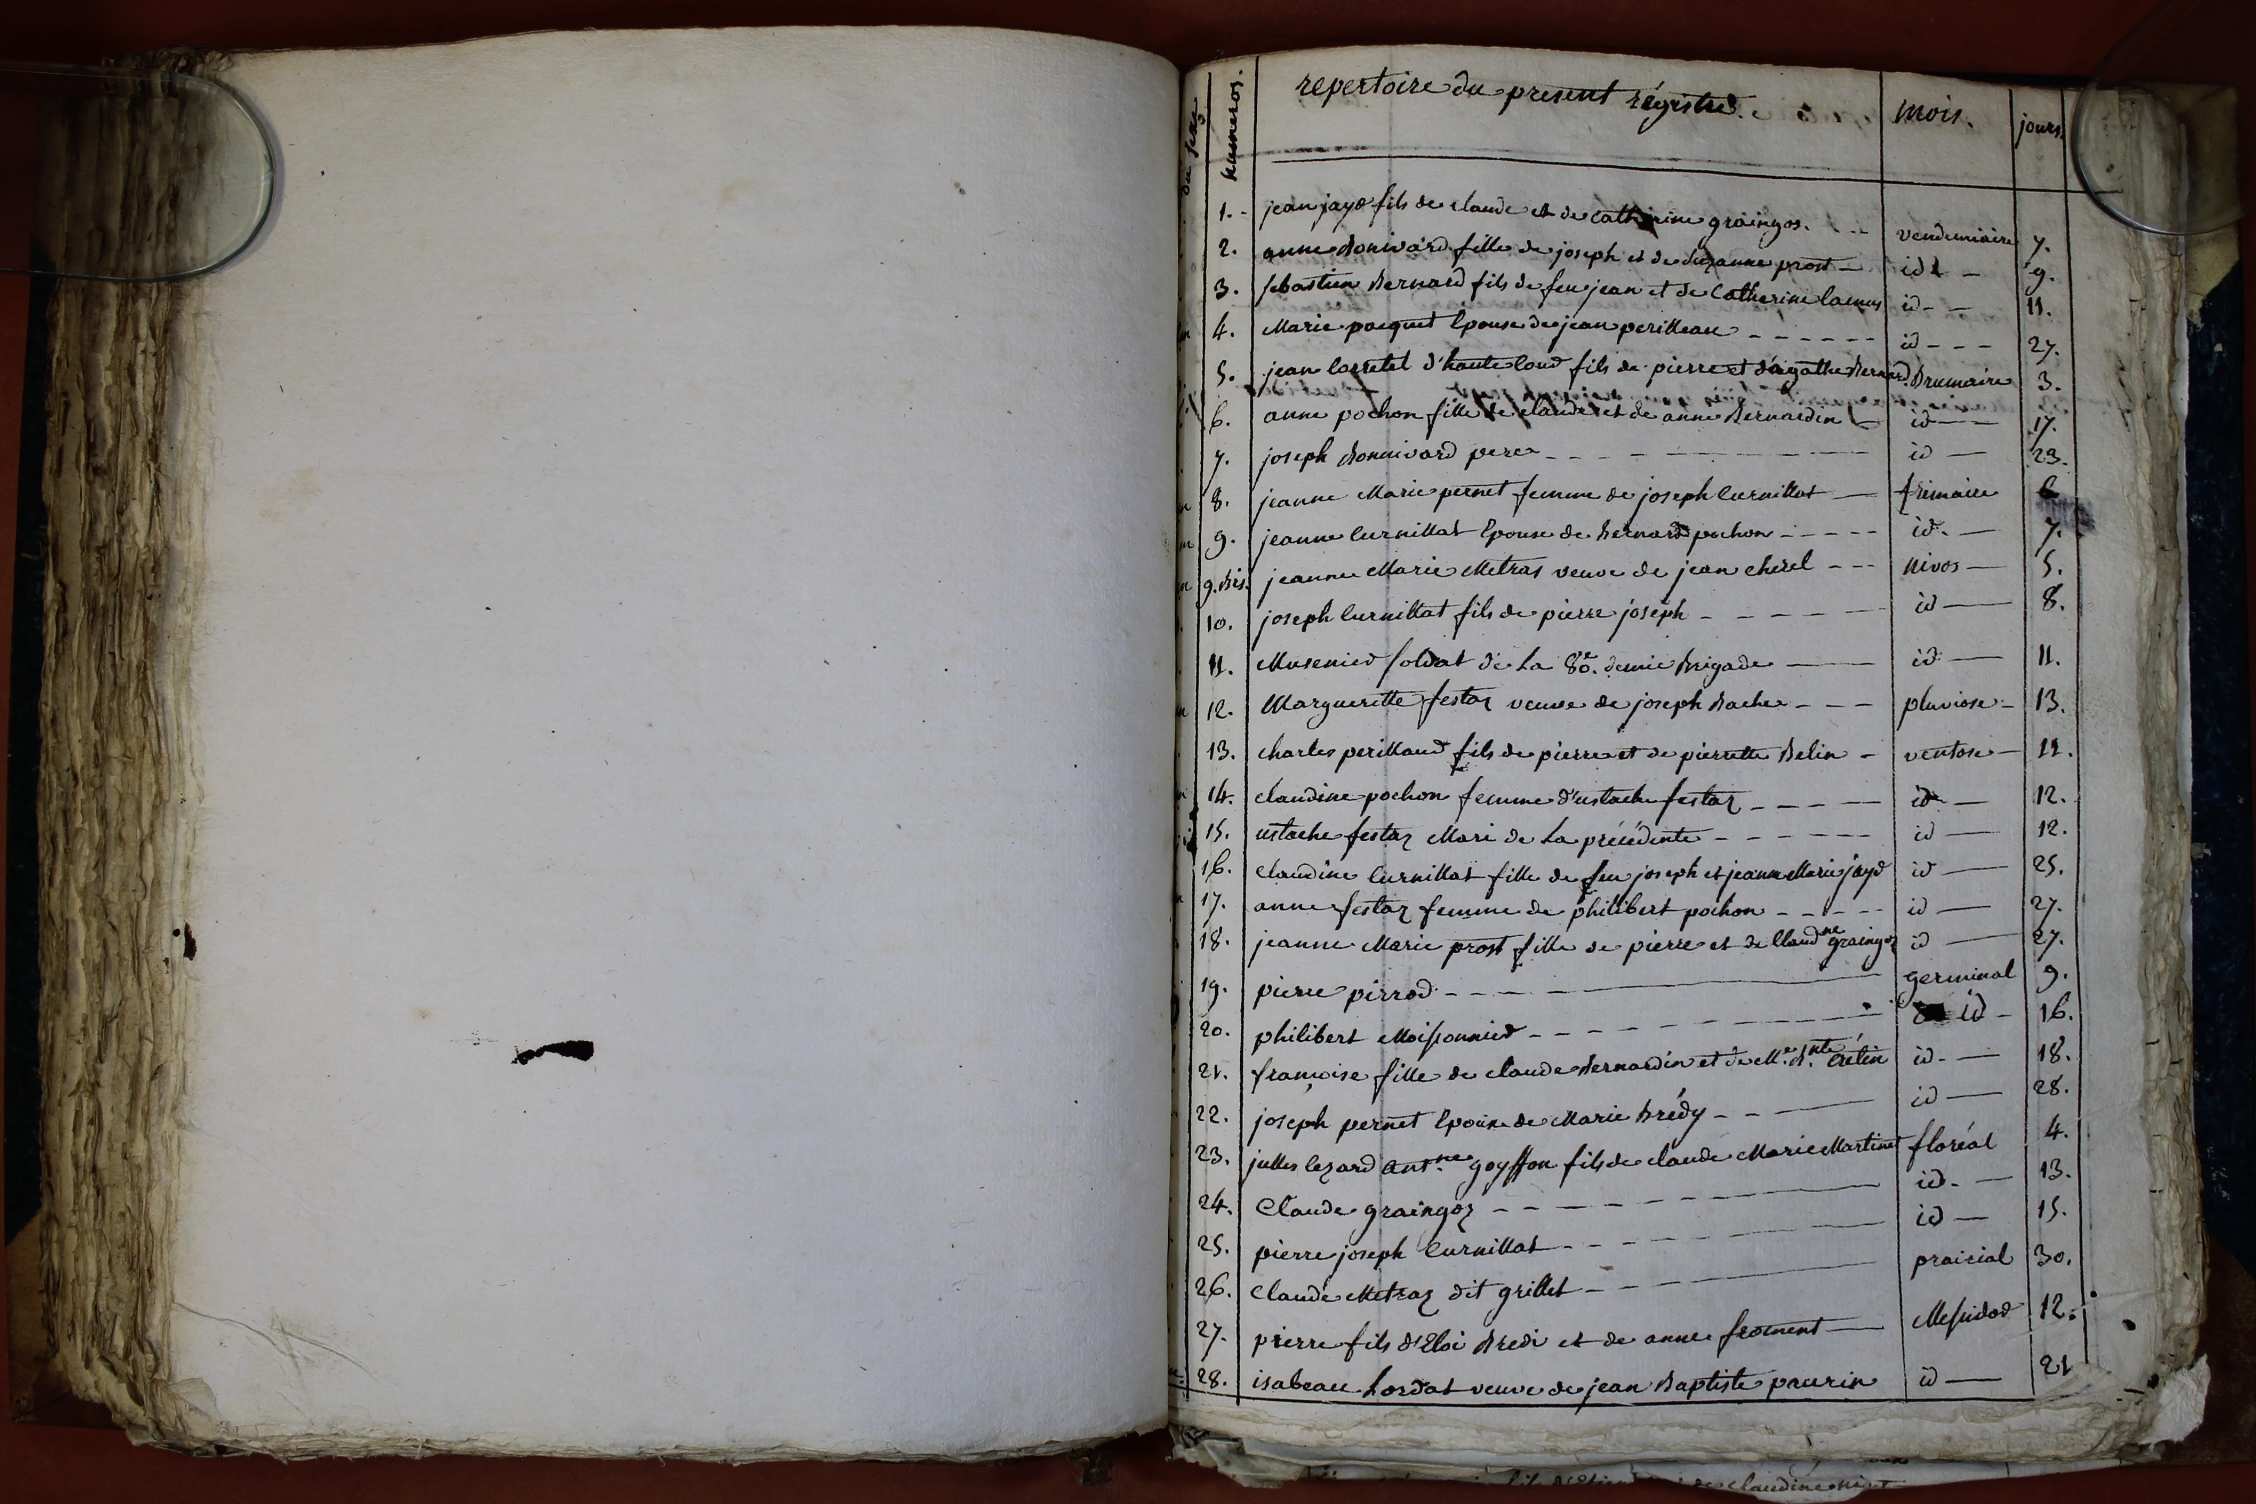 numeros. repertoire du present régistre. mois. jours.
1. jean jayd fils de claude et de catherine graingos. vendemiaire 7.
2. anne bonivard fille de joseph et de suzanne prost id 9.
3. sebastien bernard fils de feu jean et de Catherine lacmus id 11.
4. Marie pacquet Epouse de jean perilleau id 27.
5. jean lorretet d'hauteloud fils de pierre et d'agathe bernard. brumaire 3.
6. anne pochon fille de claude et de anne bernardin id 17.
7. joseph bonnivard pere id 23.
8. jeanne Marie pernet femme de joseph curnillat frimaire 6
9. jeanne curnillat Epouse de bernard pochon id. 7.
9. bis. jeanne Marie Metras veuve de jean cherel nivos 5.
10. joseph curnillat fils de pierre joseph id 8.
11. Musenied soldat de La 80.e demie brigade id 11.
12. Marguerette festaz veuve de joseph bache pluviose 13.
13. charles perillaud fils de pierre et de pierrette belin ventose 11.
14. claudine pochon femme d'ustache festaz id 12.
15. ustache festaz Mari de La précédente id 12.
16. claudine curnillat fille de feu joseph et jeanne Marie jayd id 25.
17. anne festaz femme de philibert pochon id 27.
18. jeanne Marie prost fille de pierre et de Claud.ne graingoz id 27.
19. pierre pirrod germinal 9.
20. philibert Moissonnied id 16.
21. françoise fille de claude bernardin et de M.e b.nte Crélin id. 18.
22. joseph pernet Epoux de Marie brédy id 28.
23. julles cezard Ant.ne goyffon fils de claude Marie Martinet floréal 4.
24. Claude graingoz id. 13.
25. pierre joseph Curnillat id 15.
26. Claude Metraz dit grillet prairial 30.
27. pierre fils d'Eloi bredi et de anne froment Messidod 12.
28. isabeau hordat veuve de jean baptiste paurin id 21